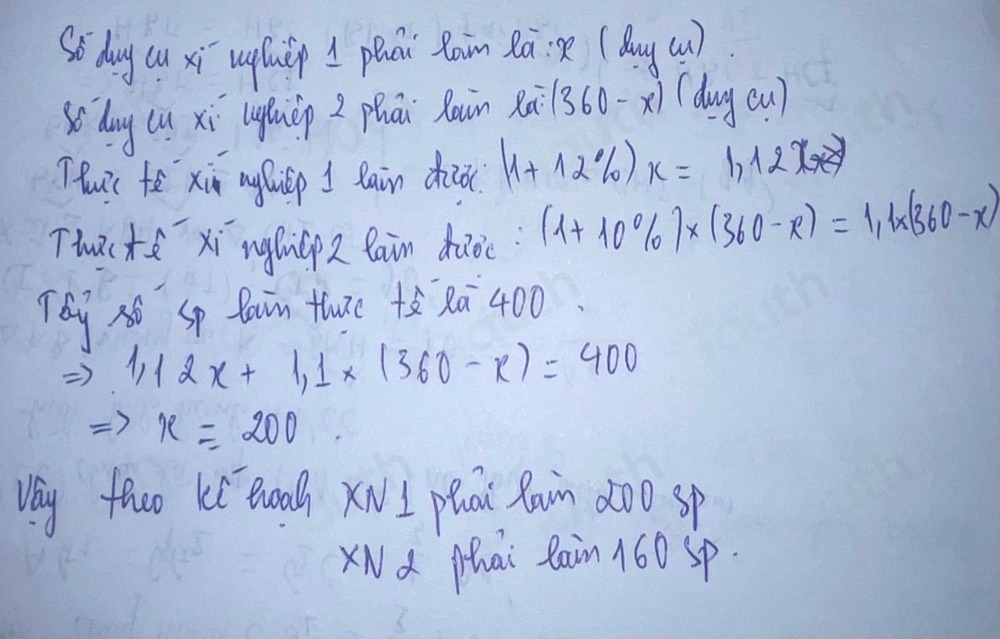 Số dụng cụ xí nghiệp 1 phải làm là: x (dụng cụ).
Số dụng cụ xí nghiệp 2 phải làm là: (360 - x) (dụng cụ)
Thực tế xí nghiệp 1 làm được: (1 + 12%) x = 1,12x
Thực tế xí nghiệp 2 làm được: (1 + 10%) × (360 - x) = 1,1×(360 - x)
Tổng số sp làm thực tế là 400.
=> 1,12x + 1,1 × (360 - x) = 400
=> x = 200.
Vậy theo kế hoạch XN 1 phải làm 200 sp
XN 2 phải làm 160 sp.